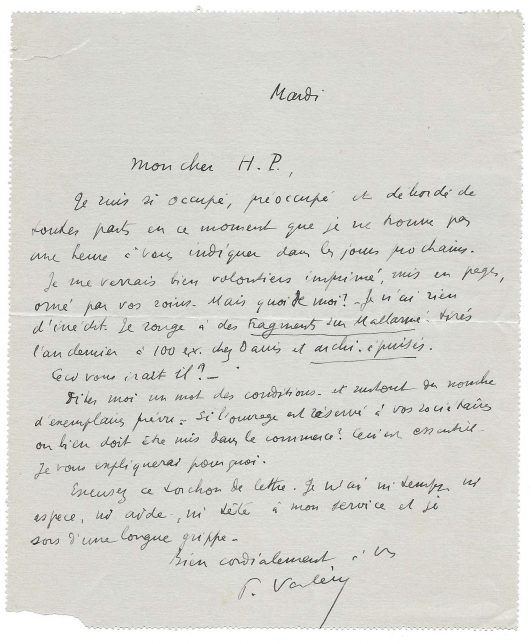 Mardi
Mon cher H. P.,
Je suis si occupé, préoccupé et débordé de
toutes parts en ce moment que je ne trouve pas
une heure à vous indiquer dans les jours prochains.
Je me verrais bien volontiers imprimé, mis en pages,
orné par vos soins. Mais quoi de moi? - Je n'ai rien
d'inédit. Je songe à des Fragments sur Mallarmé tirés
l'an dernier à 100 ex. chez Davis et archi-épuisés.
Ceci vous irait il? -
Dites moi un mot des conditions - et surtout du nombre
d'exemplaires prévu - Si l'ouvrage est réservé à vos sociétaires
ou bien doit être mis dans le commerce? Ceci est essentiel.
Je vous expliquerai pourquoi.
Excusez ce torchon de lettre. Je n'ai ni temps, ni
espace, ni aide, ni tête à mon service et je
sors d'une longue grippe -
Bien cordialement à vs
P. Valéry